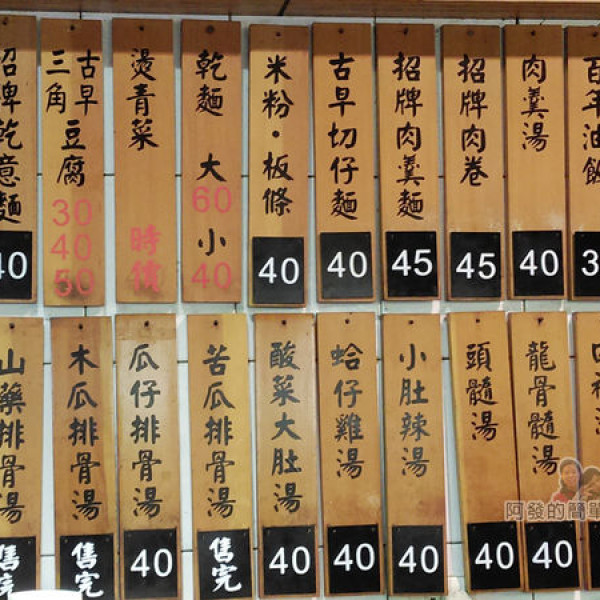 招牌乾意麵 40
古早三角豆腐 30 40 50
燙青菜 時價
乾麵 大60 小40
米粉·板條 40
古早切仔麵 40
招牌肉羹麵 45
招牌肉卷 45
肉羹湯 40
百年油飯 3
山藥排骨湯 售完
木瓜排骨湯 售完
瓜仔排骨湯 40
苦瓜排骨湯 售完
酸菜大肚湯 40
蛤仔雞湯 40
小肚辣湯 40
頭髓湯 40
龍骨髓湯 40
湯
阿發的簡單